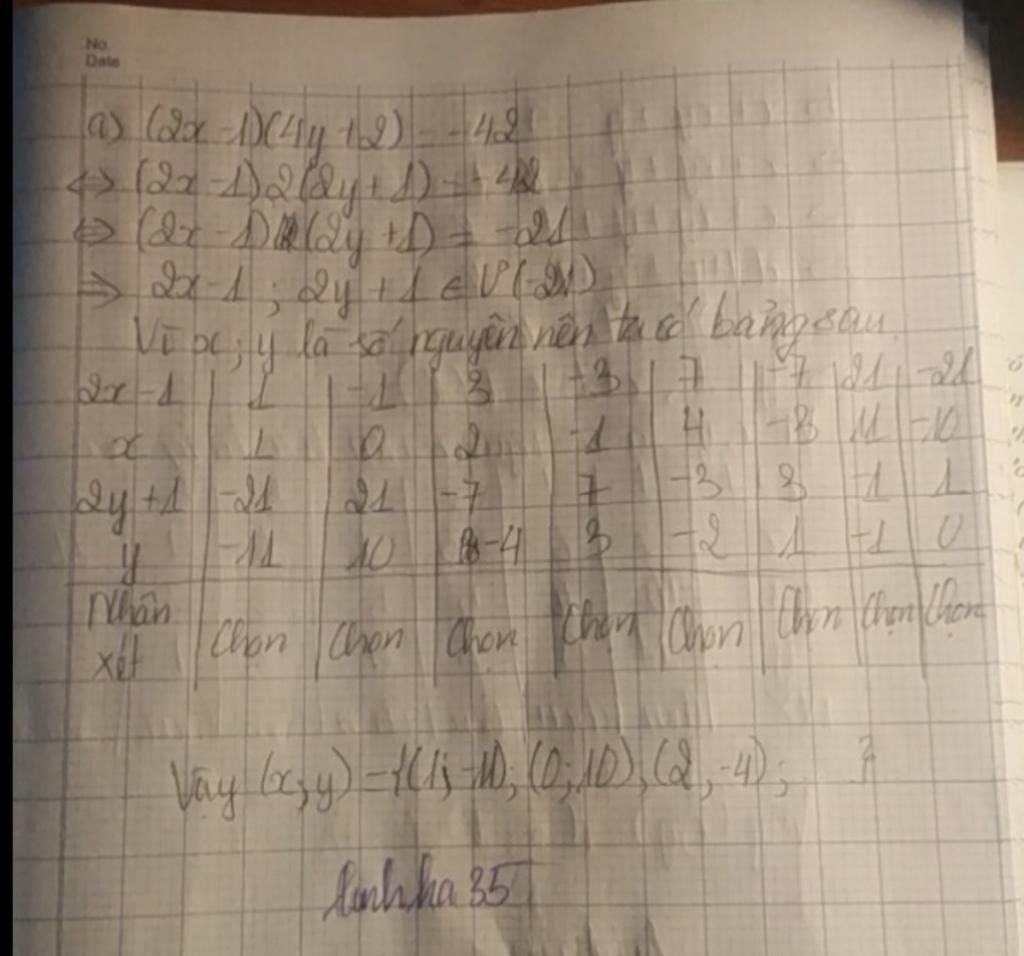 No.
Date
a) (2x - 1)(4y + 2) = -42
⇔ (2x - 1)2(2y + 1) = -42
⇔ (2x - 1)(2y + 1) = -21
⇒ 2x - 1 ; 2y + 1 ∈ Ư(-21)
Vì x; y là số nguyên nên ta có bảng sau
2x - 1 | 1 | -1 | 3 | -3 | 7 | -7 | 21 | -21
x | 1 | 0 | 2 | -1 | 4 | -3 | 11 | -10
2y + 1 | -21 | 21 | -7 | 7 | -3 | 3 | -1 | 1
y | -11 | 10 | -4 | 3 | -2 | 1 | -1 | 0
Nhận xét | Chọn | Chọn | Chọn | Chọn | Chọn | Chọn | Chọn | Chọn
Vậy (x; y) = {(1; -11); (0; 10); (2; -4); }
linhha 35